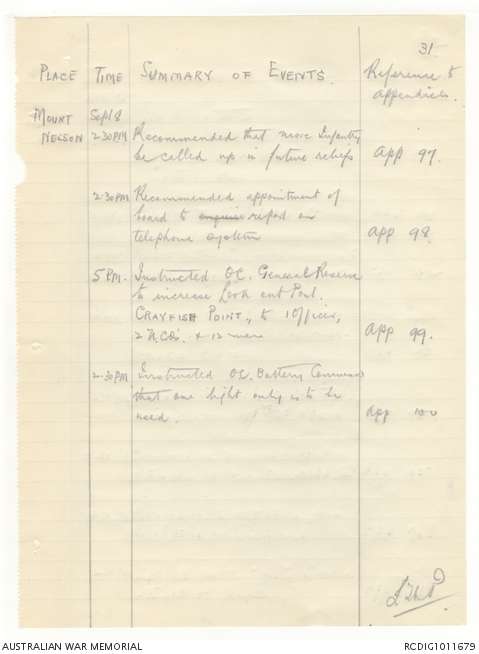 31.
PLACE TIME SUMMARY OF EVENTS. Reference to
appendices.
MOUNT Sept 8
NELSON 2.30PM Recommended that more Infantry
be called up in future reliefs app 97.
2.30PM Recommended appointment of
board to enquire report on
telephone system app 98.
5 PM. Instructed OC. General Reserve
to increase Look out Post.
CRAYFISH POINT, to 1 Officer,
2 N.COs. & 12 men app 99.
2.30PM Instructed OC. Battery Command
that one light only is to be
used. app 100
AUSTRALIAN WAR MEMORIAL RCDIG1011679